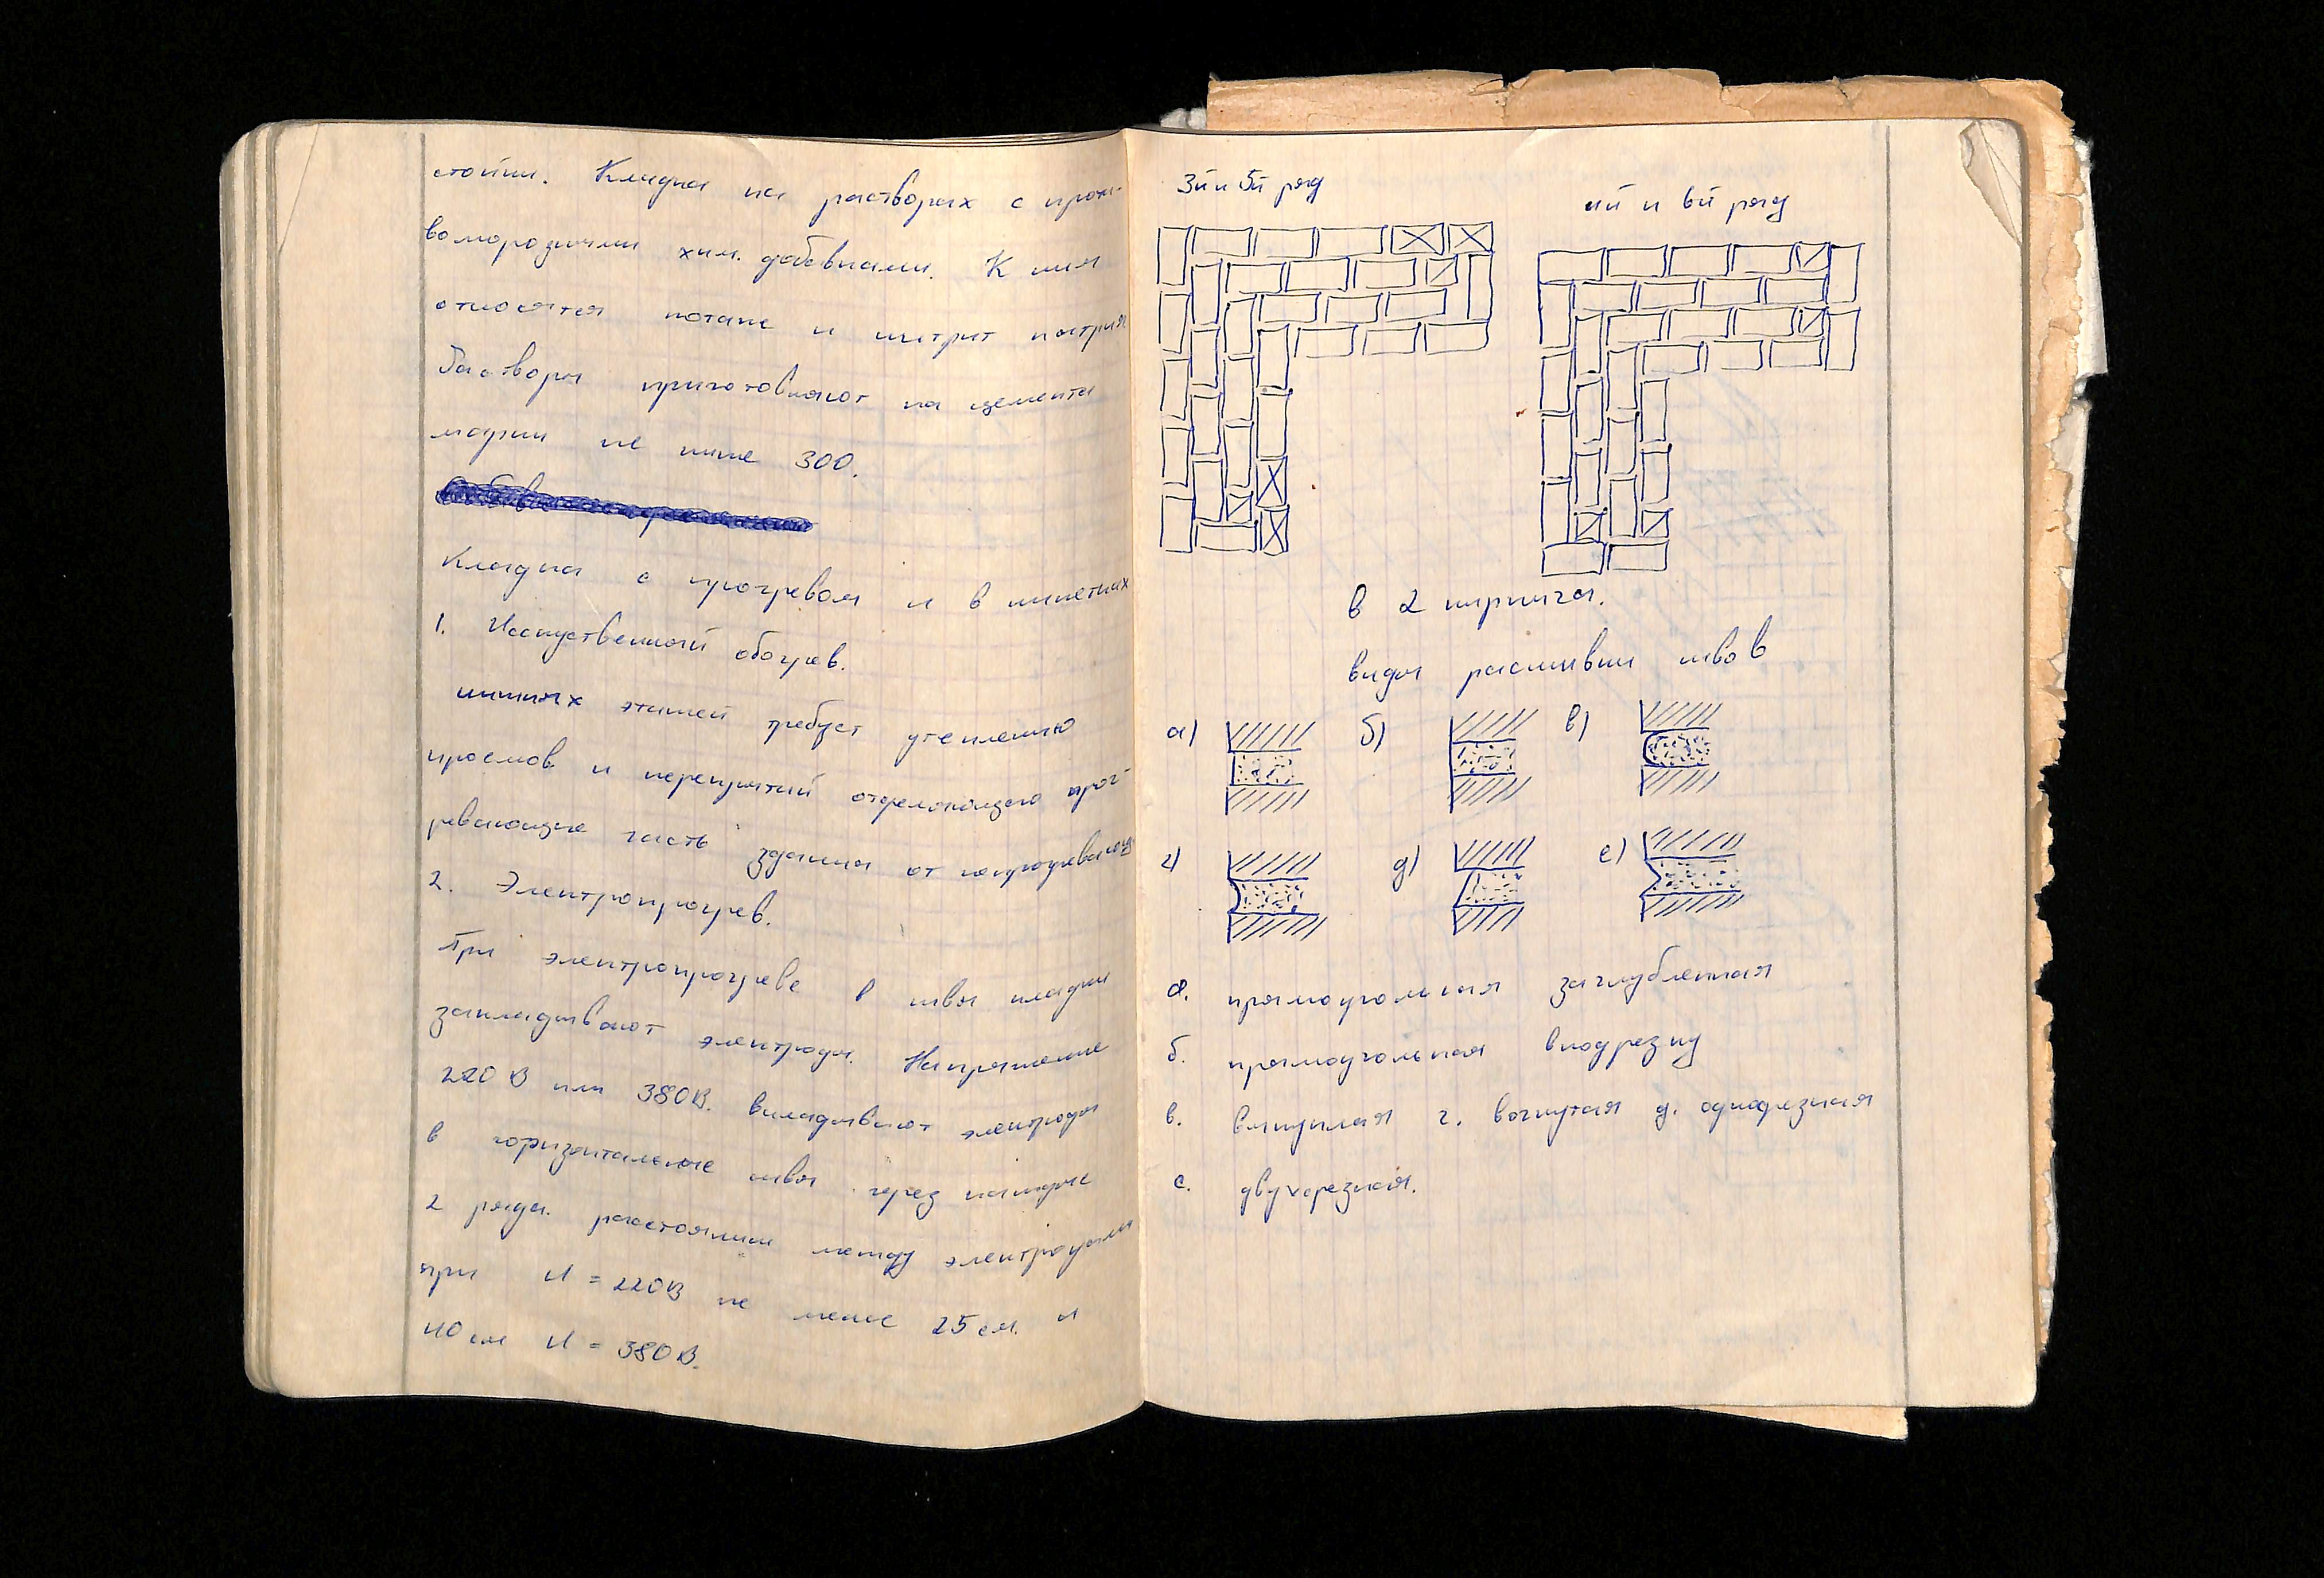 стойки. Кладка на растворах с проти-
воморозными хим. добавками. К ним
относятся поташ и нитрит натрия
Растворы приготовляют на цемента
марки не ниже 300.
Кладка с прогревом и в
1. Исскуственный обогрев.
нижних этажей требует утеплению
проемов и перекрытий отделяющего прог-
ревающие часть здания от
2. Электропрогрев.
При электропрогреве в швы кладки
закладывают электроды. Напряжение
220 В или 380 В. вкладывают электроды
в горизонтальные швы через каждые
2 ряда. расстоянии между электродами
при U = 220 В не менее 25 см. и
40 см U = 380 В.
3й и 5й ряд
4й и 6й ряд
в 2 кирпича.
виды расшивки швов
а) б) в)
г) д) е)
а. прямоугольная заглубленная
б. прямоугольная вподрезку
в. выпуклая г. вогнутая д. однорезная
е. двухрезная.